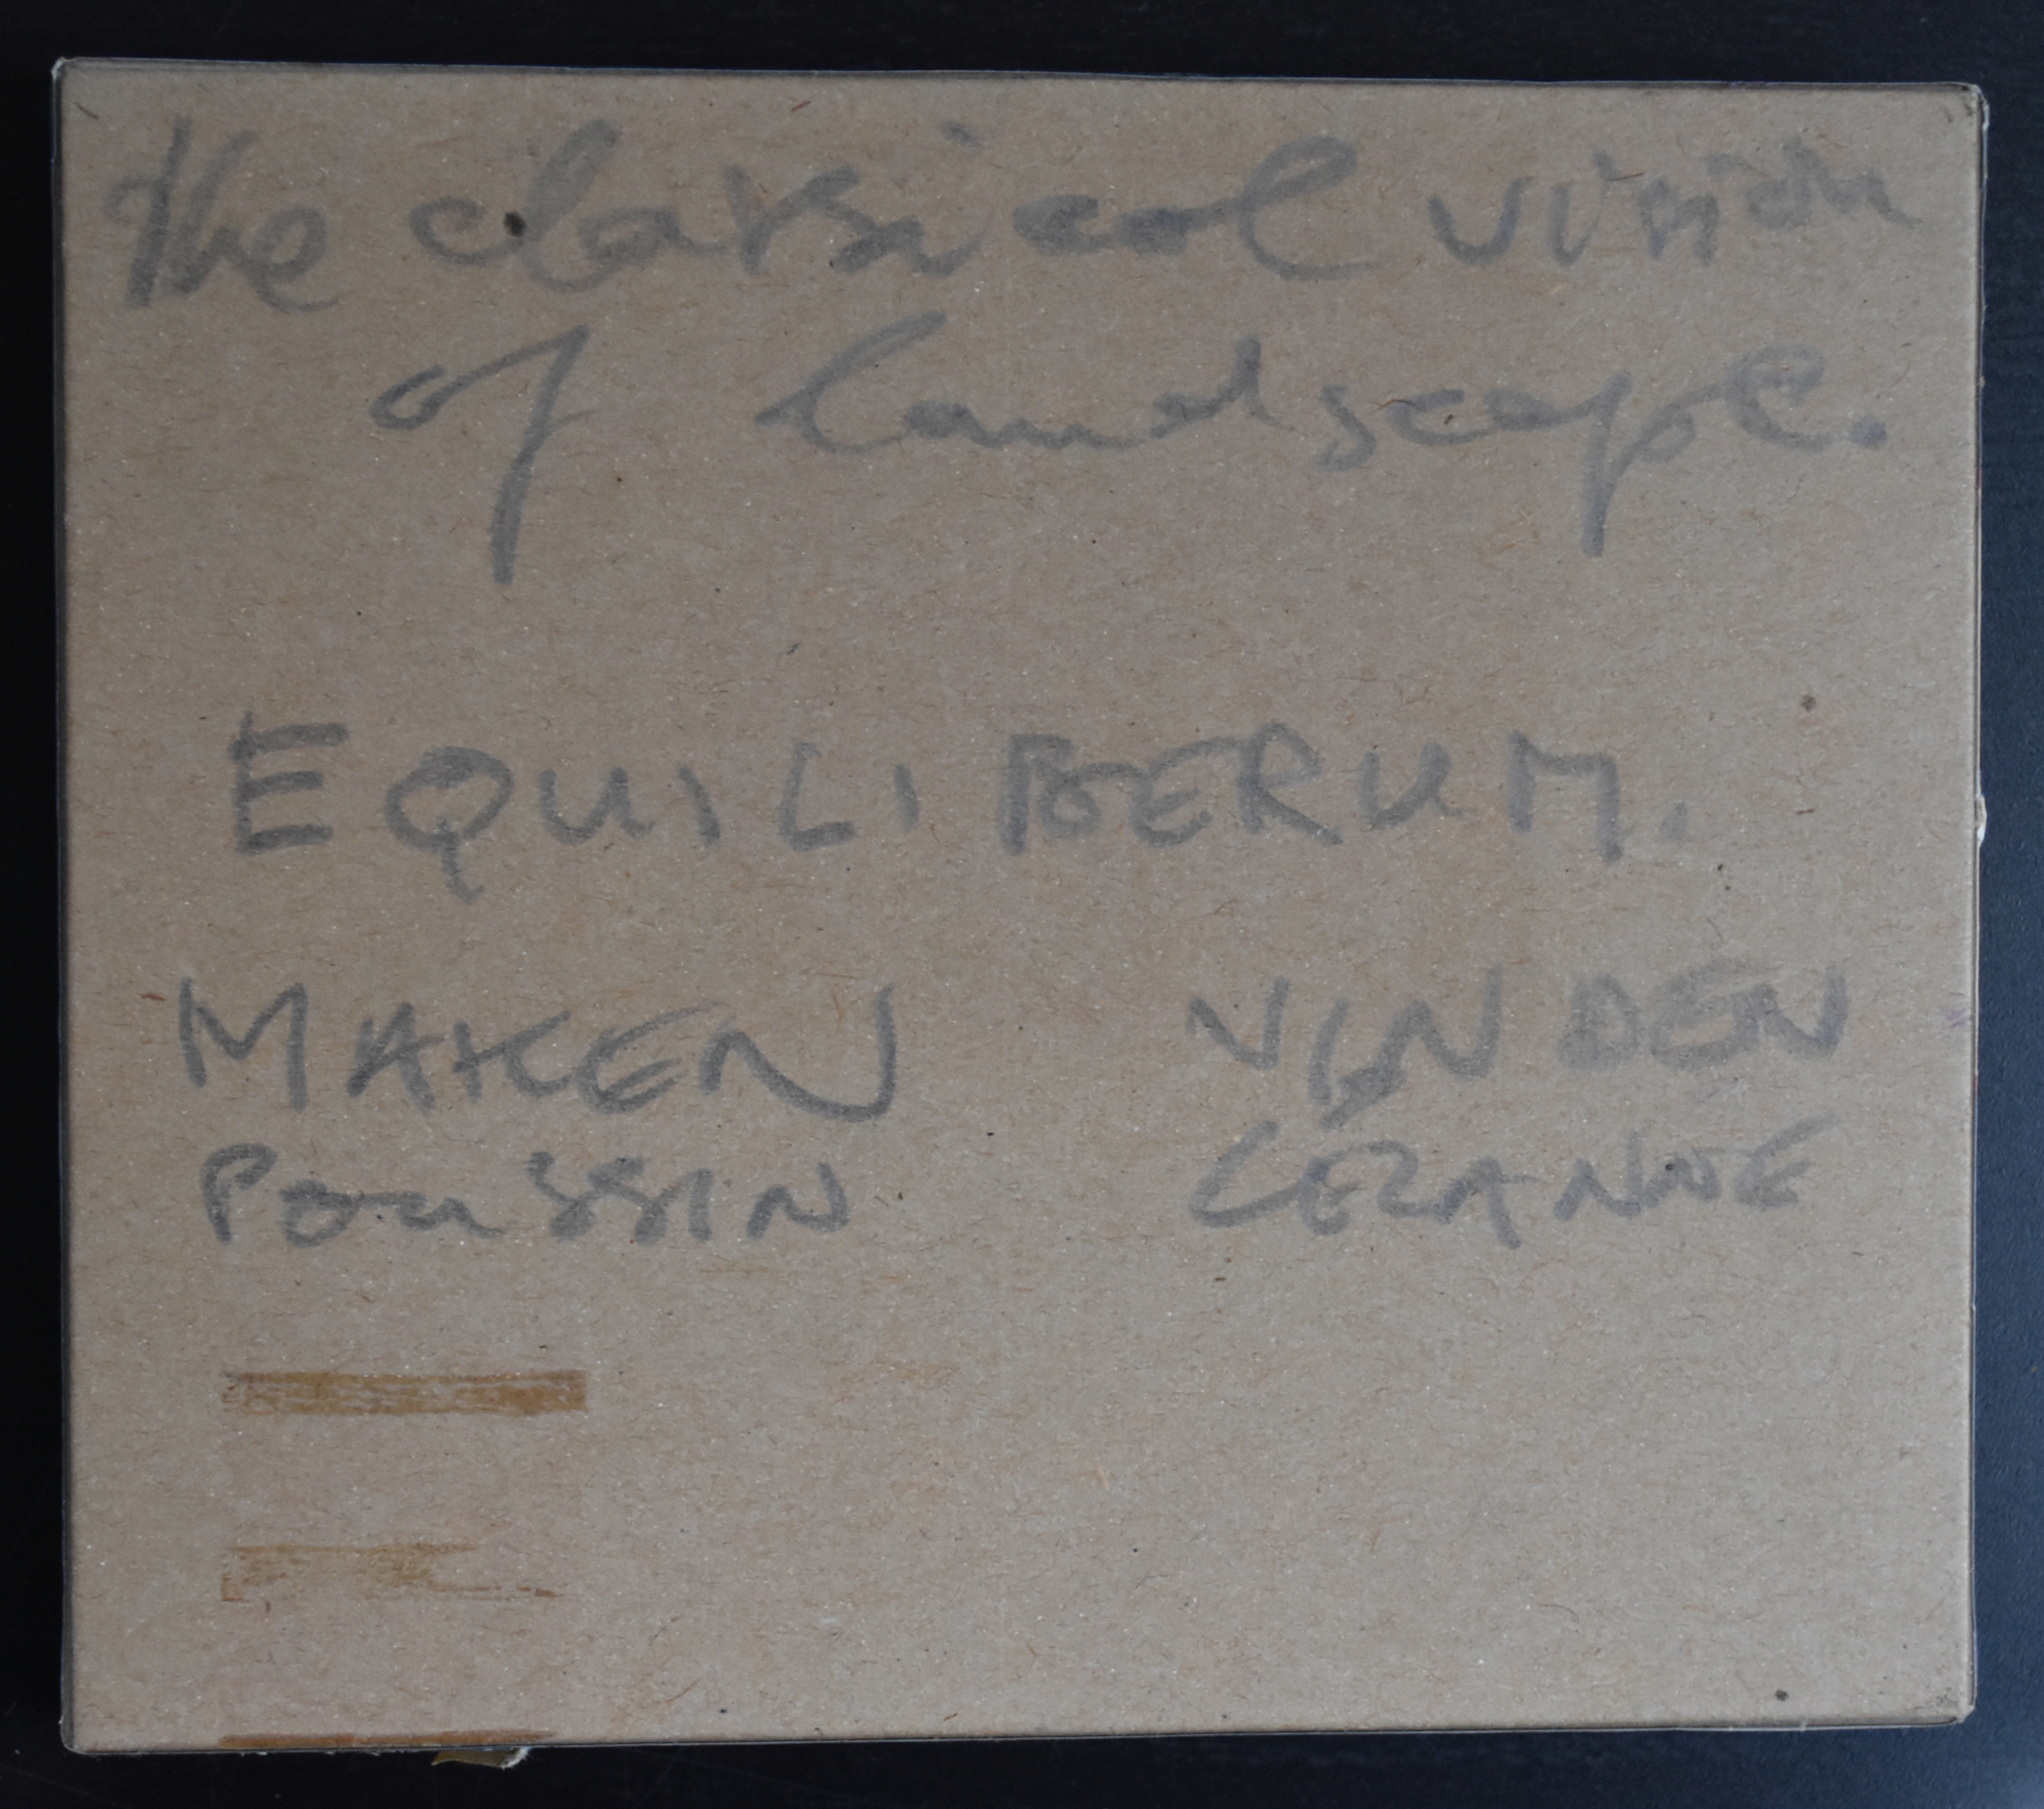 the classical vision
of landscape.
EQUILIBERUM.
MAKEN VINDEN
POUSSIN CEZANNE